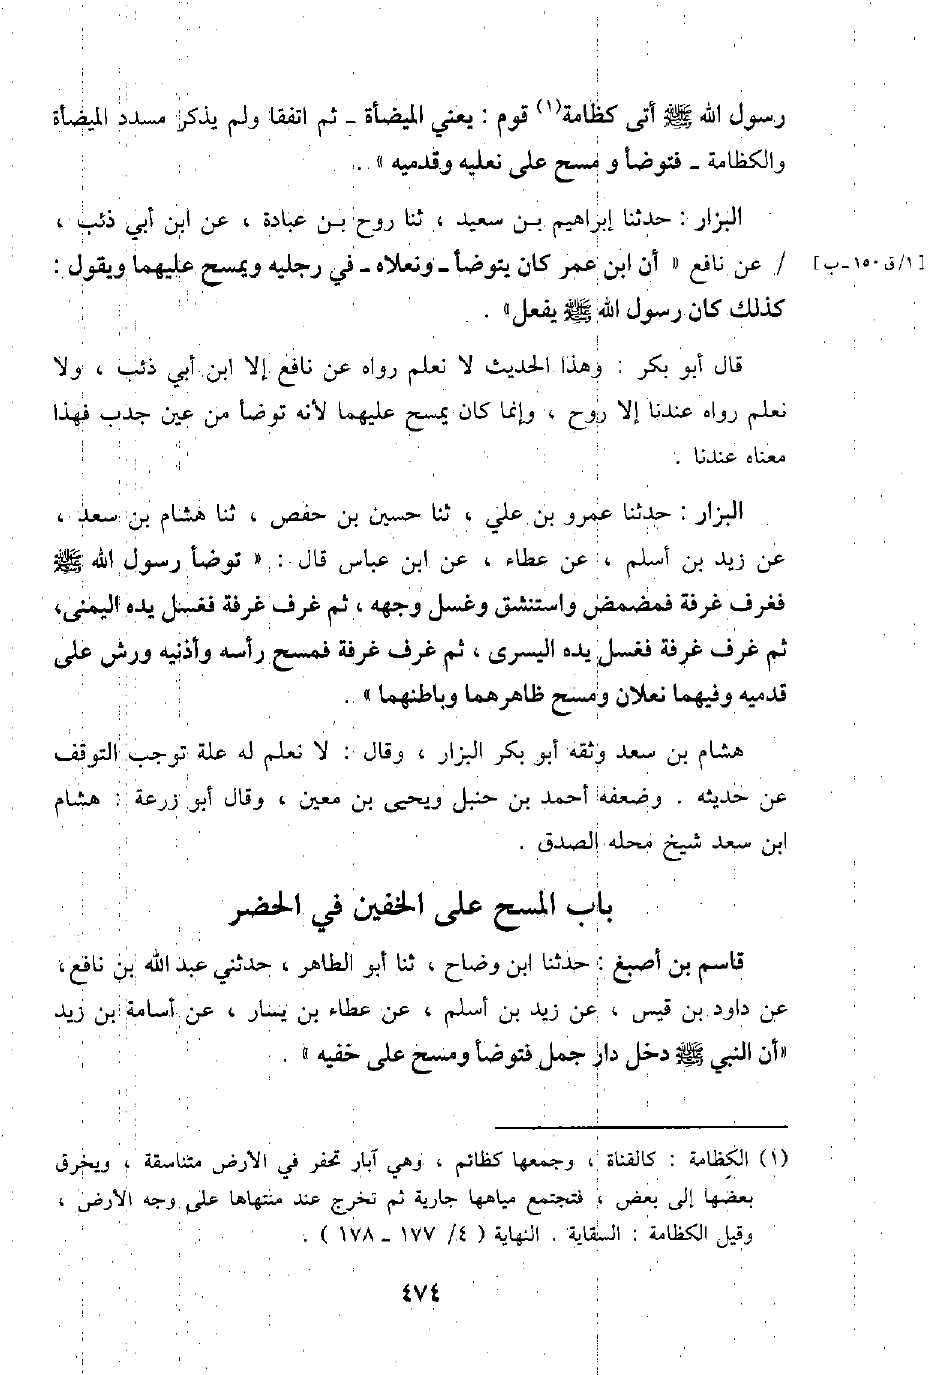 رسول الله ﷺ أتى كظامة(١) قوم : يعني الميضأة ـ ثم اتفقا ولم يذكر مسدد الميضأة
والكظامة ـ فتوضأ و مسح على نعليه وقدميه » .
البزار : حدثنا إبراهيم بن سعيد ، ثنا روح بن عبادة ، عن ابن أبي ذئب ،
/ عن نافع « أن ابن عمر كان يتوضأ ـ ونعلاه ـ في رجليه ويمسح عليهما ويقول :
[١/ق ١٥٠ـب]
كذلك كان رسول الله ﷺ يفعل» .
قال أبو بكر : وهذا الحديث لا نعلم رواه عن نافع إلا ابن أبي ذئب ، ولا
نعلم رواه عندنا إلا روح ، وإنما كان يمسح عليهما لأنه توضأ من عين جدب فهذا
معناه عندنا .
البزار : حدثنا عمرو بن علي ، ثنا حسين بن حفص ، ثنا هشام بن سعد ،
عن زيد بن أسلم ، عن عطاء ، عن ابن عباس قال : « توضأ رسول الله ﷺ
فغرف غرفة فمضمض واستنشق وغسل وجهه ، ثم غرف غرفة فغسل يده اليمنى،
ثم غرف غرفة فغسل يده اليسرى ، ثم غرف غرفة فمسح رأسه وأذنيه ورش على
قدميه وفيهما نعلان ومسح ظاهرهما وباطنهما » .
هشام بن سعد وثقه أبو بكر البزار ، وقال : لا نعلم له علة توجب التوقف
عن حديثه . وضعفه أحمد بن حنبل ويحيى بن معين ، وقال أبو زرعة : هشام
ابن سعد شيخ محله الصدق .
باب المسح على الخفين في الحضر
قاسم بن أصبغ : حدثنا ابن وضاح ، ثنا أبو الطاهر ، حدثني عبد الله بن نافع،
عن داود بن قيس ، عن زيد بن أسلم ، عن عطاء بن يسار ، عن أسامة بن زيد
«أن النبي ﷺ دخل دار جمل فتوضأ ومسح على خفيه » .
(١) الكظامة : كالقناة ، وجمعها كظائم ، وهي آبار تحفر في الأرض متناسقة ، ويخرق
بعضها إلى بعض ، فتجتمع مياهها جارية ثم تخرج عند منتهاها على وجه الأرض ،
وقيل الكظامة : السقاية . النهاية ( ٤/ ١٧٧ ـ ١٧٨ ) .
٤٧٤